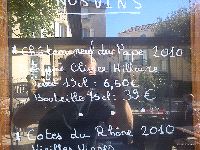 NOS VINS
Châteauneuf du Pape 2010
Olivier Hillaire
Verre 15cl : 6,50€
Bouteille 75cl : 39 €
Côtes du Rhône 2010
Vieilles Vignes